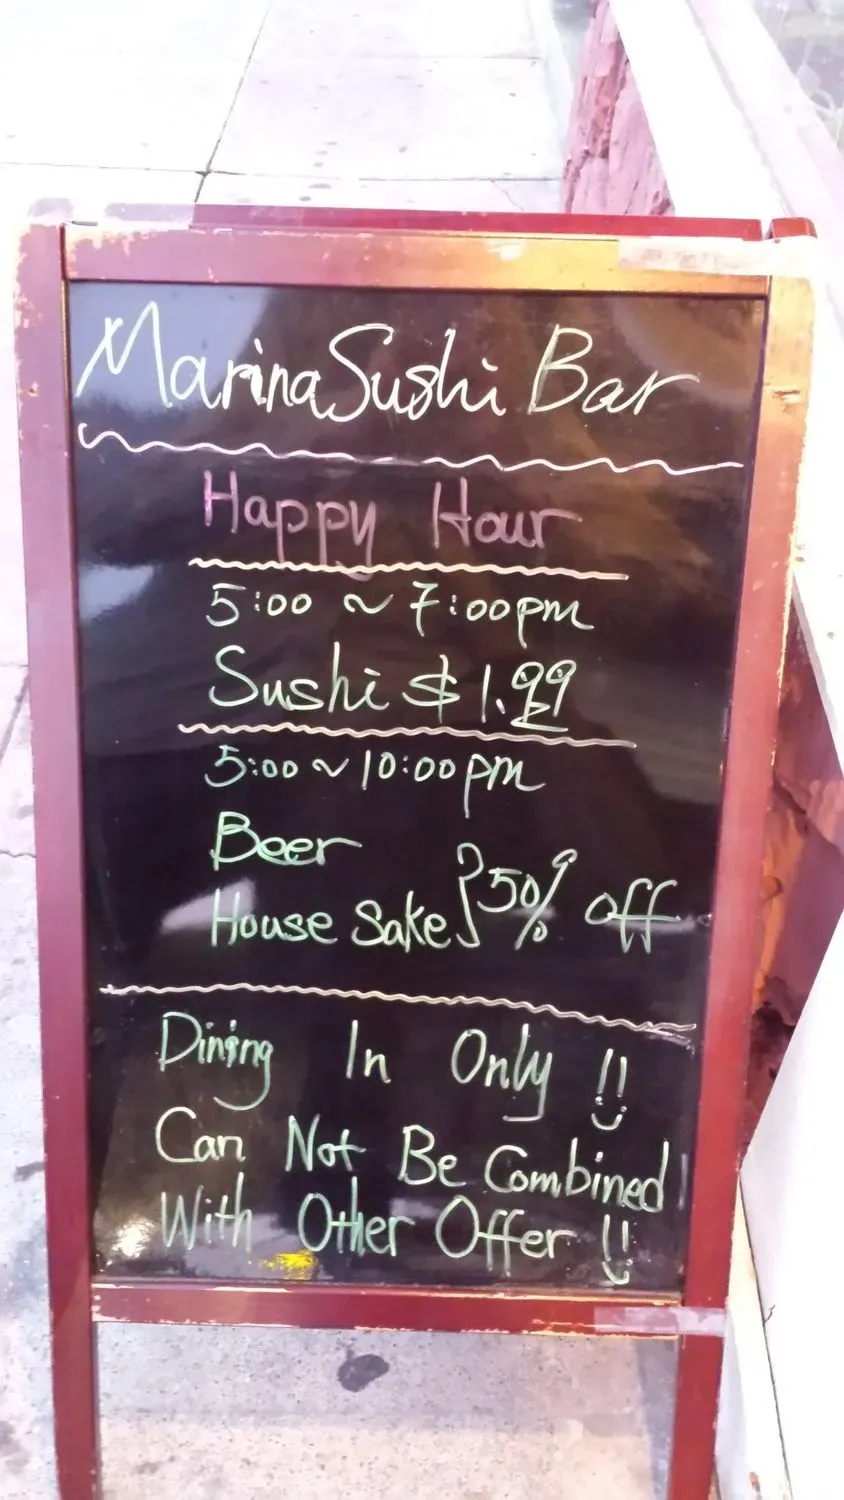 Marina Sushi Bar
Happy Hour
5:00 ~ 7:00pm
Sushi $1.99
5:00 ~ 10:00pm
Beer
House Sake } 50% off
Dining In Only !!
Can Not Be Combined
With Other Offer !!